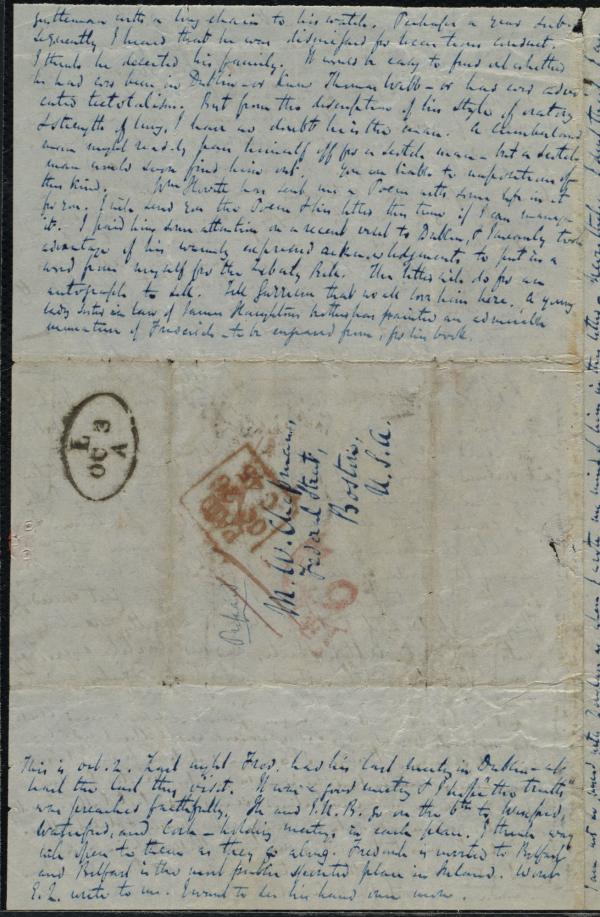 gentleman with a long chain to his watch. Perhaps a year sub-
sequently I heard that he was disgraced for licentious conduct.
I think he deserted his family. It would be easy to find out whether
he had ever been in Dublin - or knew Thomas Webb - or had ever advo-
cated teetotalism. But from the description of his style of oratory
& strength of lungs, I have no doubt he is the man. A Cumberland
man might readily pass himself off for a Scotch man - but a Scotch
man would soon find him out. You are liable to impositions of
this kind. Wm Howitt has sent me a Poem with some life in it
for you. I will send you the Poem & his letter this time if I can manage
it. I paid him some attention on a recent visit to Dublin, & I took
advantage of his warmly expressed acknowledgments to put in a
word from myself for the Liberty Bell. His letter will do for an
autograph to sell. Tell Garrison that we all love him here. A young
lady sister in law of James Haughton's has painted an admirable
miniature of Frederick - to be engraved from, for his book.
L
OC 3
A
Prepaid
M. W. Chapman,
Federal Street,
Boston,
U.S.A.
This is Oct. 2. Last night Fred. had his last meeting in Dublin - at
least the last this visit. It was a good meeting & I hope "the truth"
was preached faithfully. He and J.N.B. go on the 6th to Wexford,
Waterford, and Cork - holding meetings in each place. I think way
will open to them as they go along. Frederick is invited to Belfast
and Belfast is the most public spirited place in Ireland. Wont
E.Q. write to me. I want to see his hand once more.